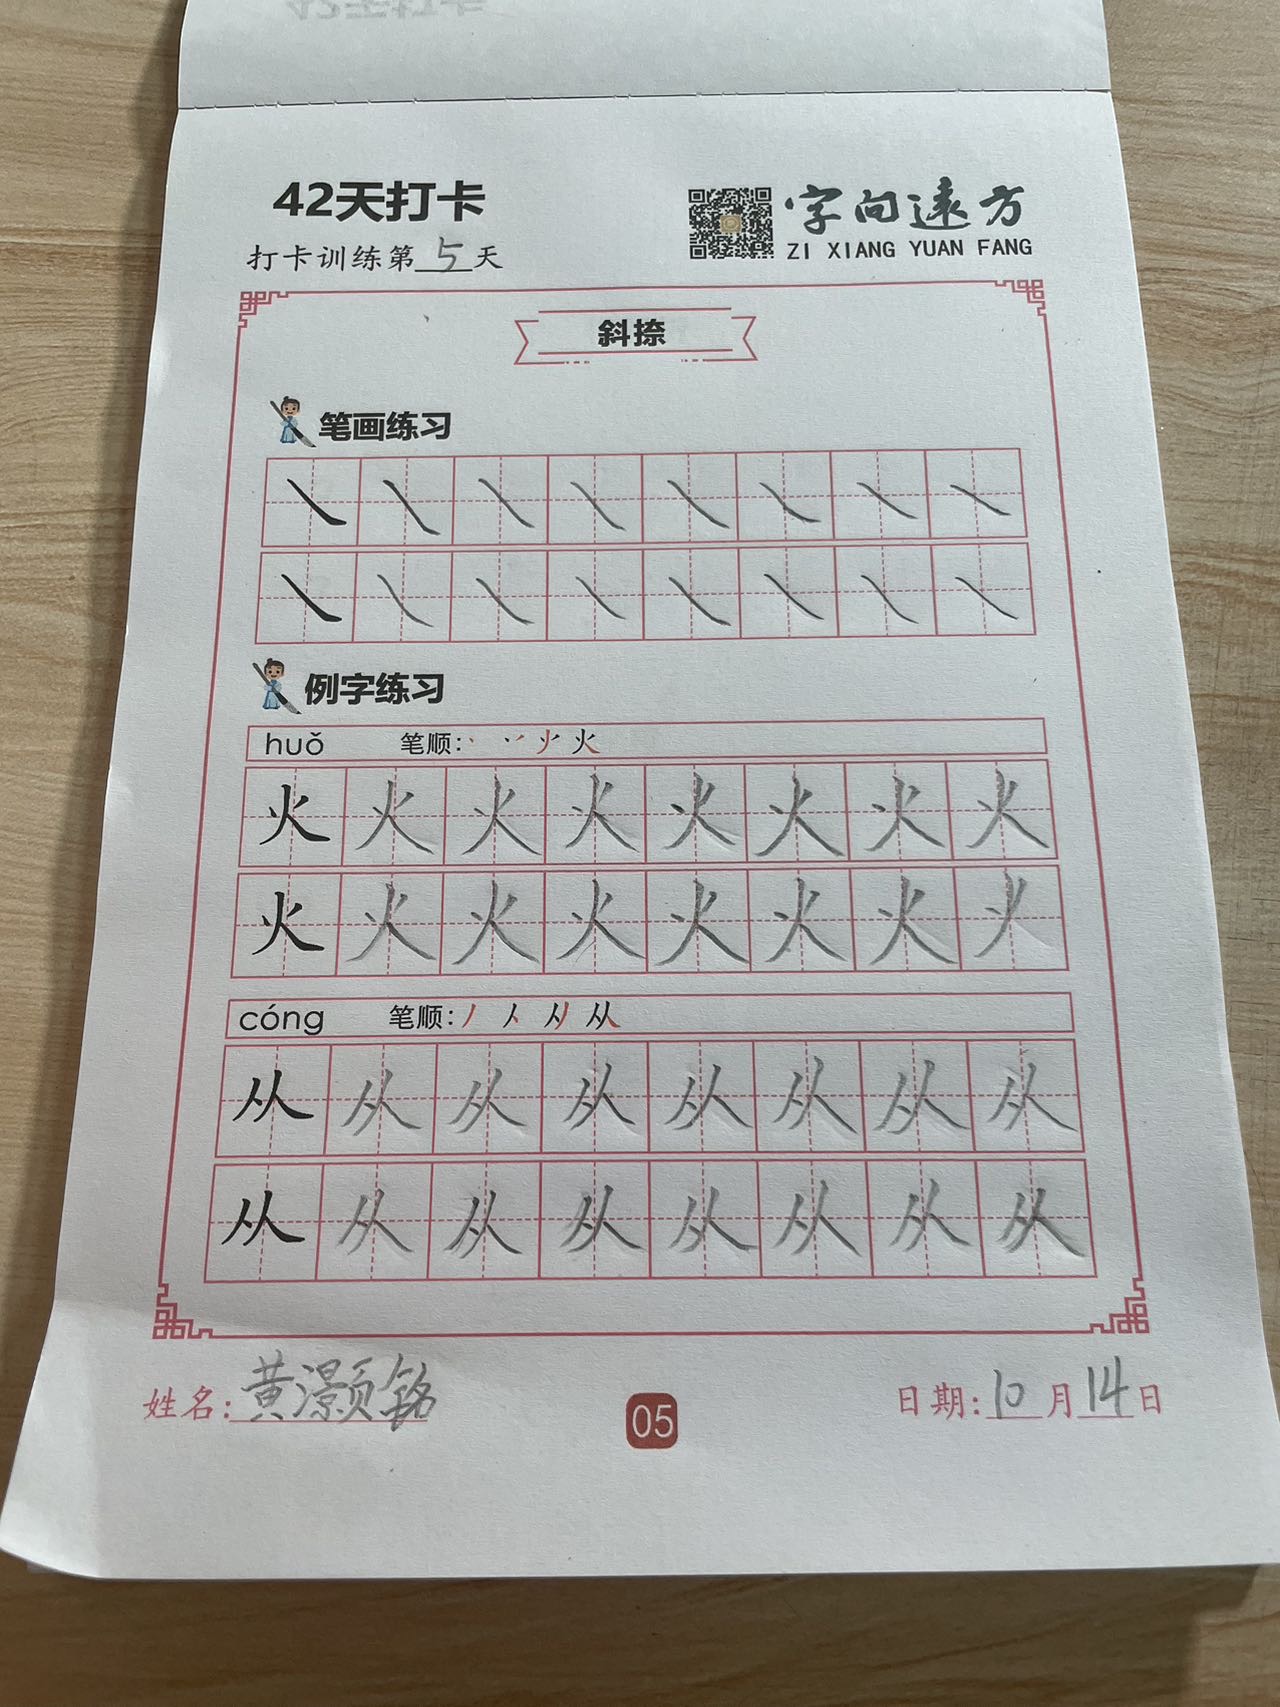 42天打卡
字向远方
打卡训练第5天
ZI XIANG YUAN FANG
斜捺
笔画练习
例字练习
huǒ 笔顺: 火
火 火 火 火 火 火 火 火
火 火 火 火 火 火 火 火
cóng 笔顺: 从
从 从 从 从 从 从 从 从
从 从 从 从 从 从 从 从
姓名: 黄灏铭
05
日期: 10月14日